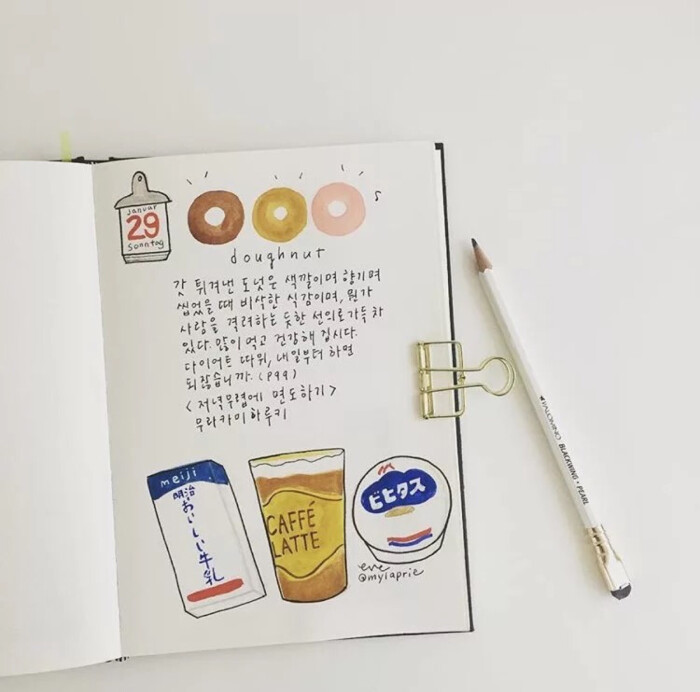 Januar
29
Sonntag
s
doughnut
갓 튀겨낸 도넛은 색깔이며 향기며
씹었을 때 바삭한 식감이며, 뭔가
사람을 격려하는 듯한 선의로 가득 차
있다. 많이 먹고 건강해 집시다.
다이어트 따위, 내일부터 하면
되잖습니까. (p99)
<저녁무렵에 면도하기>
무라카미하루키
meiji
明治
おいしい牛乳
CAFFÉ
LATTE
ビヒダス
eve
@mylaprie
BLACKWING · PEARL